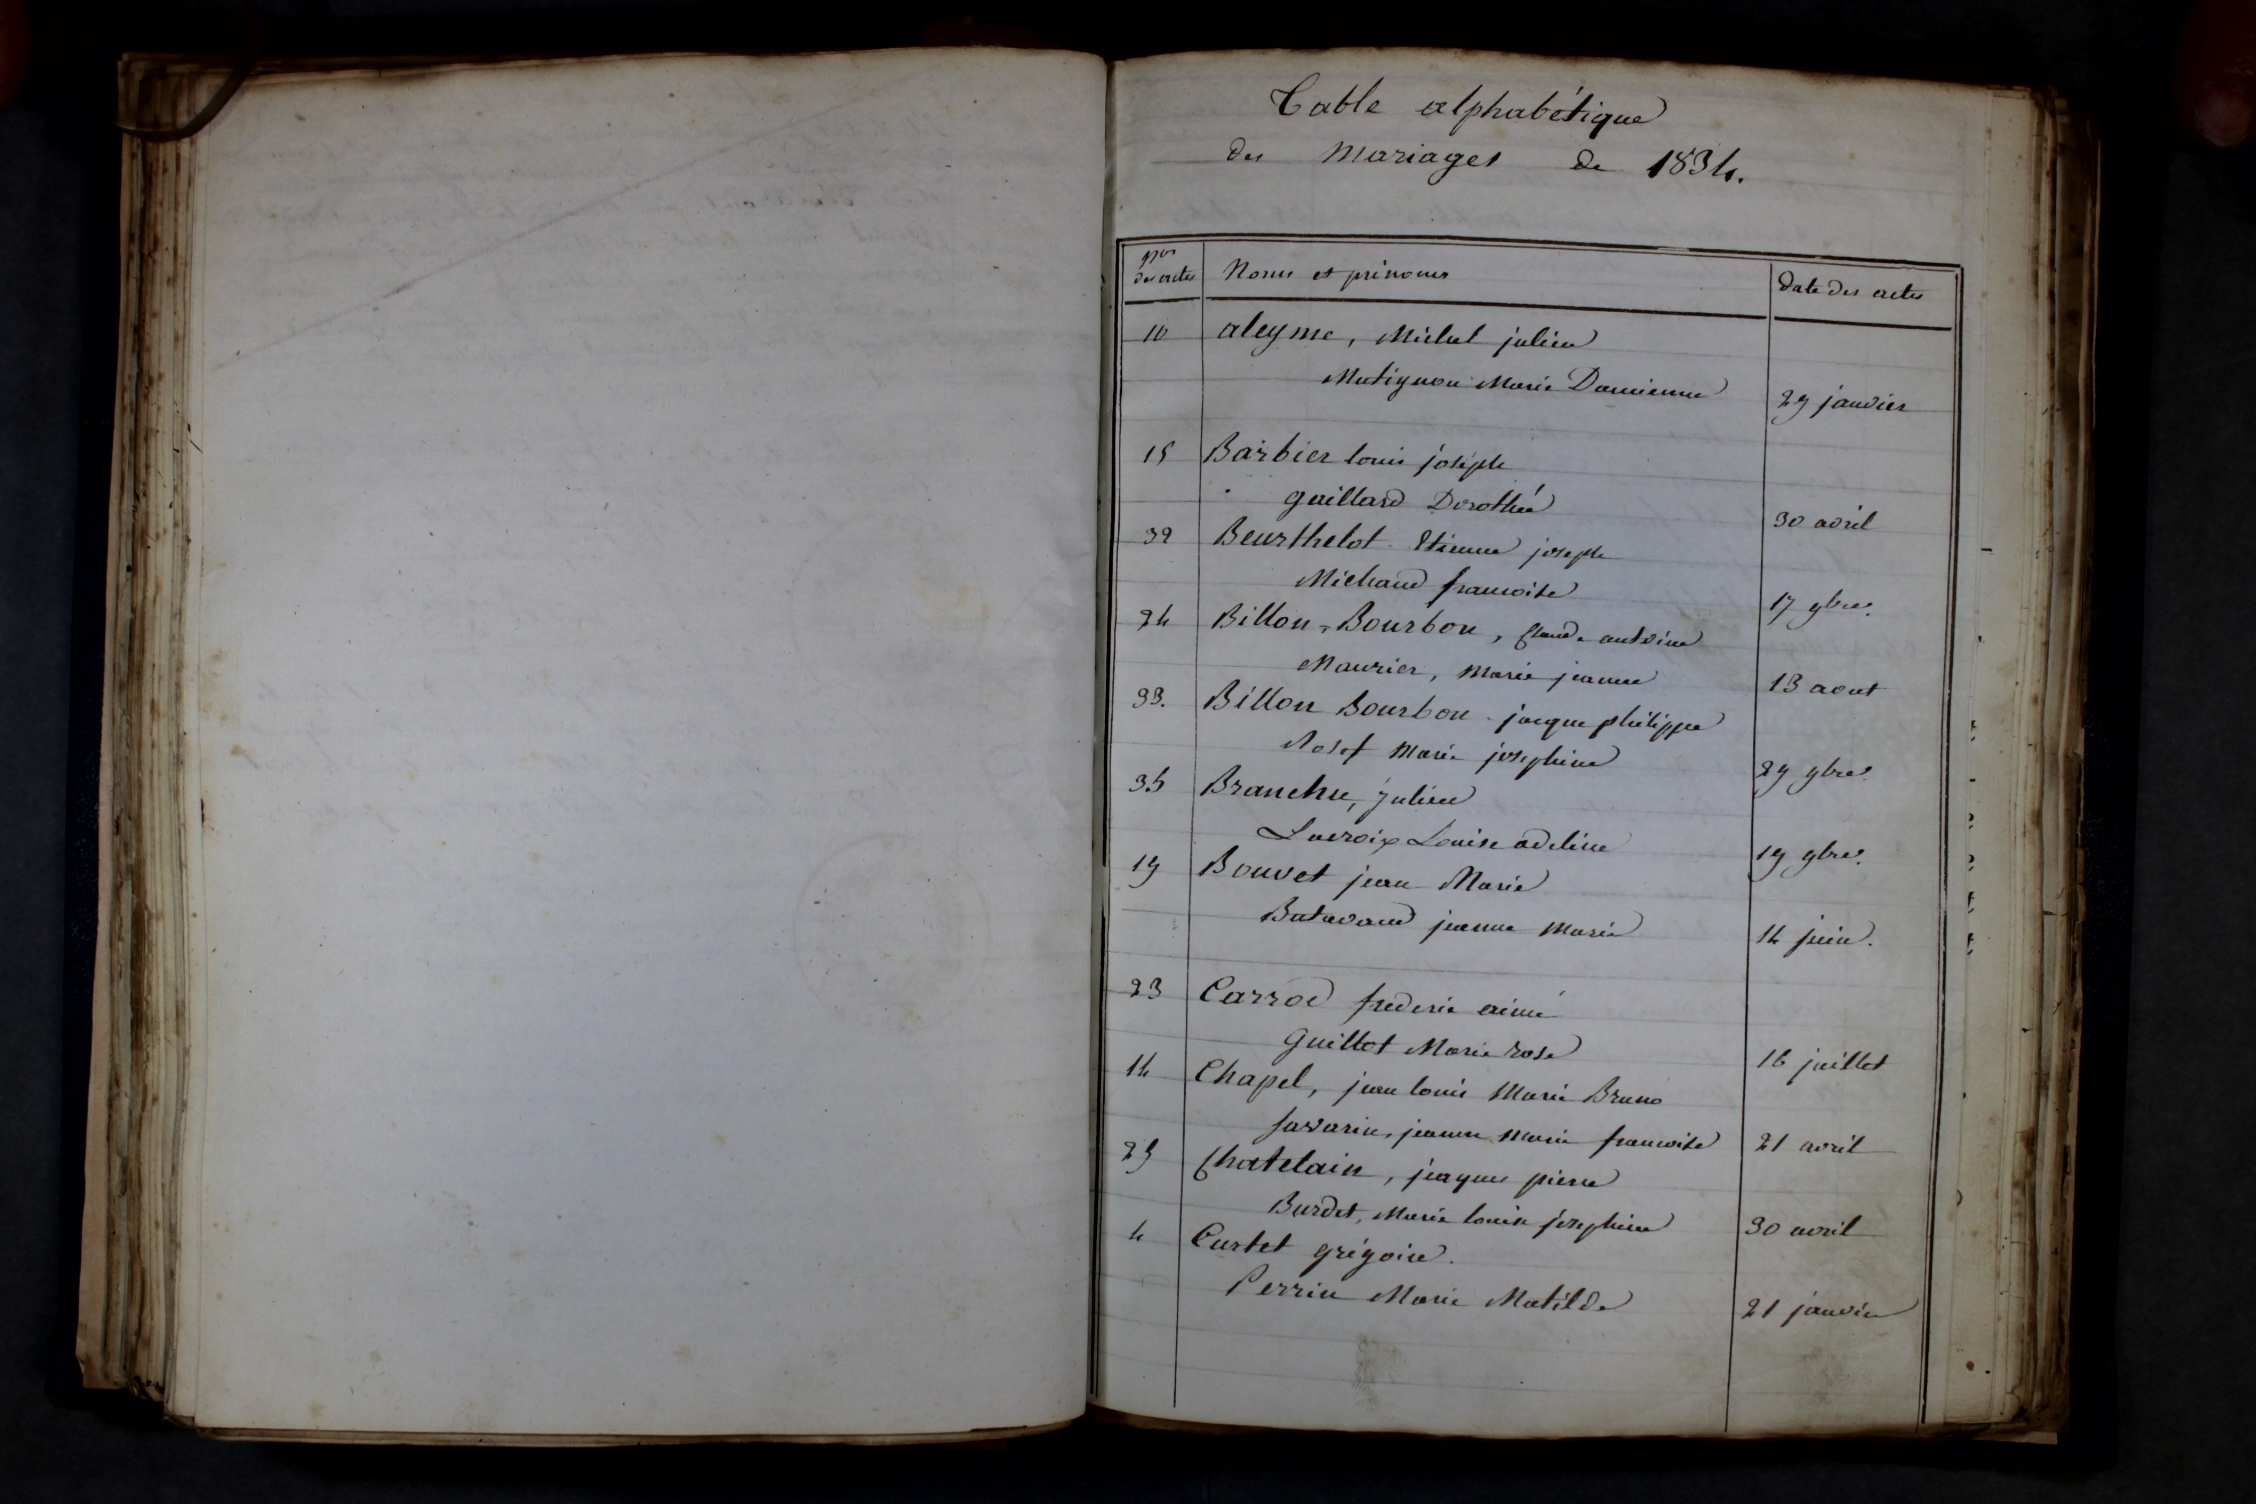 Table alphabétique
des Mariages de 1834.
Nos des actes
Noms et prénoms
date des actes
10 aleyme, Michel julien
Matignon Marie Damienne 29 janvier
15 Barbier louis joséph
gaillard Dorothée 30 avril
32 Beurthelot Etienne joseph
Michaud francoise 17 9bre.
24 Billon-Bourbon, Claude antoine
Maurier, Marie jeanne 13 aout
33. Billon Bourbon jacque philippe
Marie josephine 29 9bre.
35 Branche, julien
Lacroix Louise adeline 19 9bre.
19 Bouvet jean Marie
Batavard jeanne Marie 14 juin.
23 Carrod frederic aimé
Guillot Marie rose 16 juillet
14 Chapel, jean louis Marie Bruno
favarin, jeanne Marie francoise 21 avril
25 Chatelain, jaques pierre
Burdet, Marie louise josephine 30 avril
4 Curtet grégoire.
Perrin Marie Matilde 21 janvier